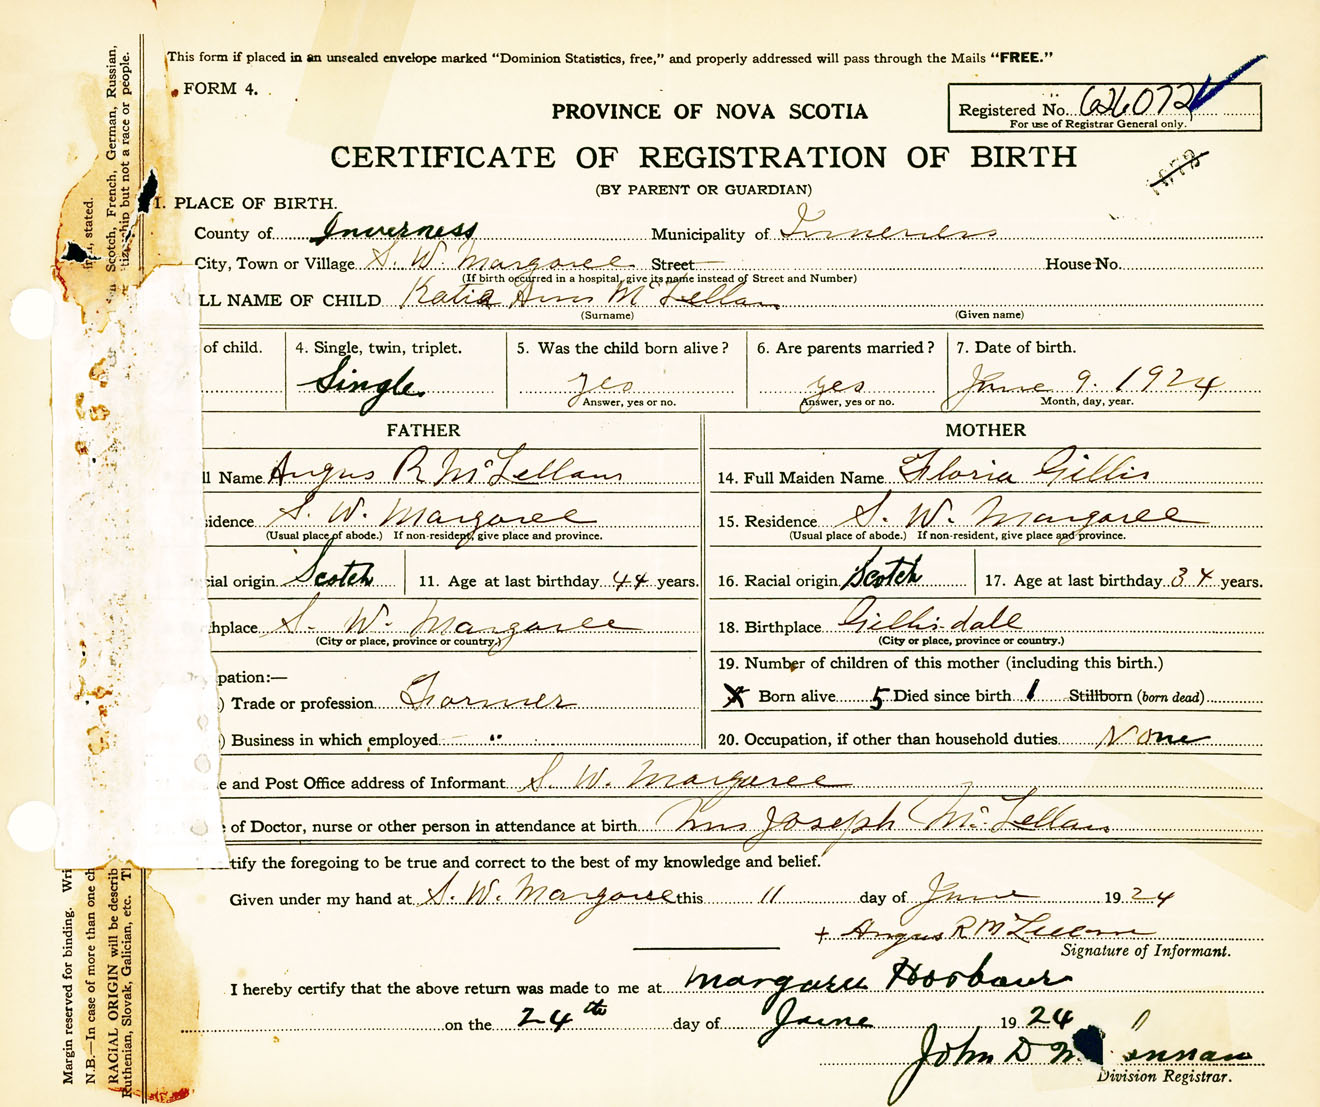 This form if placed in an unsealed envelope marked "Dominion Statistics, free," and properly addressed will pass through the Mails "FREE."
FORM 4.
PROVINCE OF NOVA SCOTIA
Registered No. 626072
For use of Registrar General only.
CERTIFICATE OF REGISTRATION OF BIRTH
(BY PARENT OR GUARDIAN)
1. PLACE OF BIRTH.
County of Inverness Municipality of Inverness
City, Town or Village S. W. Margaree Street House No.
(If birth occurred in a hospital, give its name instead of Street and Number)
LL NAME OF CHILD Katie Ann McLellan
(Surname) (Given name)
of child. 4. Single, twin, triplet. 5. Was the child born alive? 6. Are parents married? 7. Date of birth.
Single yes yes June 9. 1924
Answer, yes or no. Answer, yes or no. Month, day, year.
FATHER MOTHER
ll Name Angus R McLellan 14. Full Maiden Name Floria Gillis
idence S. W. Margaree 15. Residence S. W. Margaree
(Usual place of abode.) If non-resident, give place and province. (Usual place of abode.) If non-resident, give place and province.
cial origin Scotch 11. Age at last birthday 44 years. 16. Racial origin Scotch 17. Age at last birthday 34 years.
hplace S. W. Margaree 18. Birthplace Gillisdale
(City or place, province or country.) (City or place, province or country.)
pation:— 19. Number of children of this mother (including this birth.)
) Trade or profession Farmer Born alive 5 Died since birth 1 Stillborn (born dead)
) Business in which employed " 20. Occupation, if other than household duties None
e and Post Office address of Informant S. W. Margaree
of Doctor, nurse or other person in attendance at birth Mrs Joseph McLellan
tify the foregoing to be true and correct to the best of my knowledge and belief.
Given under my hand at S. W. Margaree this 11 day of June 1924
+ Angus R McLellan
Signature of Informant.
I hereby certify that the above return was made to me at Margaree Harbour
on the 24th day of June 1924
John D
Division Registrar.
Margin reserved for binding. Wri
N.B.—In case of more than one ch
RACIAL ORIGIN will be describ Scotch, French, German, Russian,
Ruthenian, Slovak, Galician, etc. T ship but not a race or people.
stated.